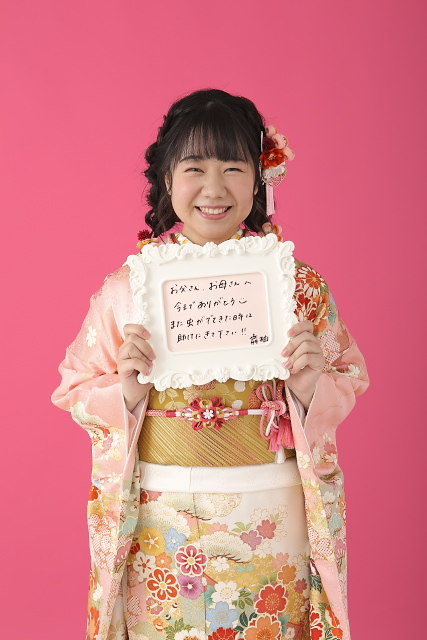 お父さん、お母さんへ
今までありがとう
また虫がでてきた時は
助けにきて下さい!!